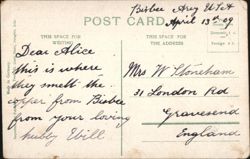 Bisbee Arez U S A
POST CARD
April 13th 09
THIS SPACE FOR
WRITING
THIS SPACE FOR
THE ADDRESS
Dear Alice
this is where
they smelt the
copper from Bisbee
from your loving
hubby Will
Mrs W Stoneham
31 London Rd
Gravesend
England